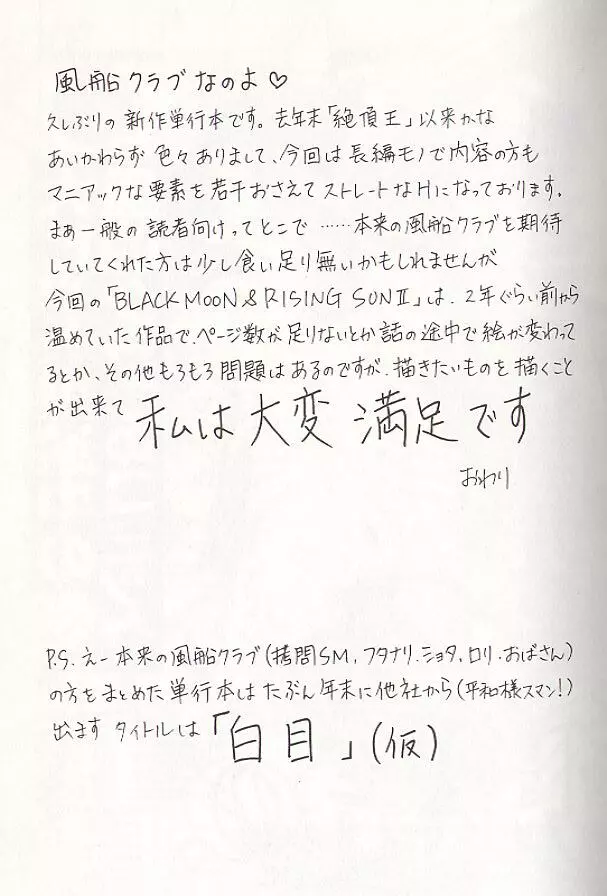 風船クラブなのよ♡
久しぶりの新作単行本です。去年末「絶頂王」以来かな
あいかわらず色々ありまして、今回は長編モノで内容の方も
マニアックな要素を若干おさえてストレートなHになっております。
まあ一般の読者向けってとこで……本来の風船クラブを期待
していてくれた方は少し食い足り無いかもしれませんが
今回の「BLACK MOON & RISING SUN II」は、2年ぐらい前から
温めていた作品で、ページ数が足りないとか話の途中で絵が変わって
るとか、その他もろもろ問題はあるのですが、描きたいものを描くこと
が出来て 私は大変満足です
おわり
P.S. えー本来の風船クラブ(拷問SM,フタナリ.ショタ,ロリ.おばさん)
の方をまとめた単行本はたぶん年末に他社から(平和様スマン!)
出ます タイトルは「白目」(仮)